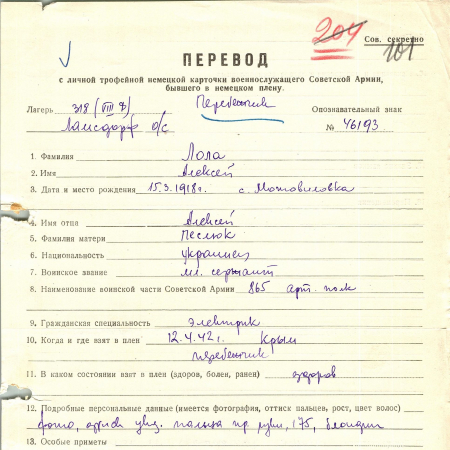 204
Сов. секретно
101
ПЕРЕВОД
с личной трофейной немецкой карточки военнослужащего Советской Армии,
бывшего в немецком плену.
Лагерь 318 (VIII Ф) Перебежчик Опознавательный знак
Ламсдорф о/с № 46193
1. Фамилия Лола
2. Имя Алексей
3. Дата и место рождения 15.3.1918г. с. Мотовиловка
4. Имя отца Алексей
5. Фамилия матери Песлюк
6. Национальность украинец
7. Воинское звание мл. сержант
8. Наименование воинской части Советской Армии 865 арт. полк
9. Гражданская специальность электрик
10. Когда и где взят в плен 12.4.42г. Крым
перебежчик
11. В каком состоянии взят в плен (здоров, болен, ранен) здоров
12. Подробные персональные данные (имеется фотография, оттиск пальцев, рост, цвет волос)
фото, оттиск указ. пальца пр. руки, 175, блондин
13. Особые приметы